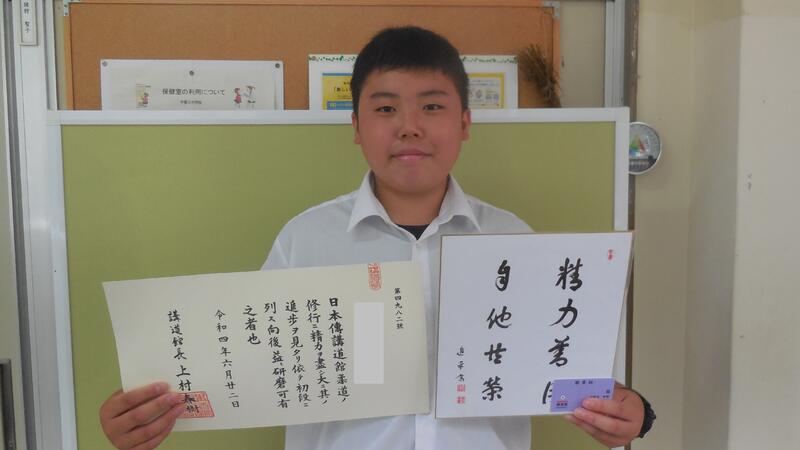 保健室の利用について
第四九八二號
日本傳講道館柔道ノ
修行ニ精力ヲ盡シ大ニ其ノ
進歩ヲ見タリ依テ初段ニ
列ス向後益々研磨可有
之者也
令和四年六月廿二日
講道館長 上村春樹
精力善用
自他共栄